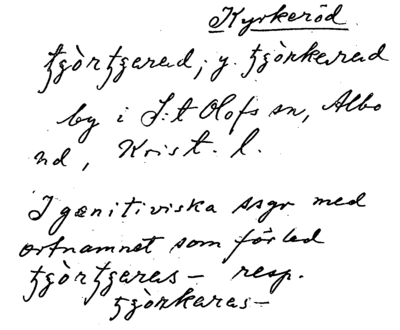 Kyrkeröd
ʈʒòrʈʒerad, y. ʈʒòrkerad
by i S:t Olofs sn, Albo
hd, Krist. l.
I genitiviska ssgr med
ortnamnet som förled
ʈʒòrʈʒeras- resp.
ʈʒòrkeras-